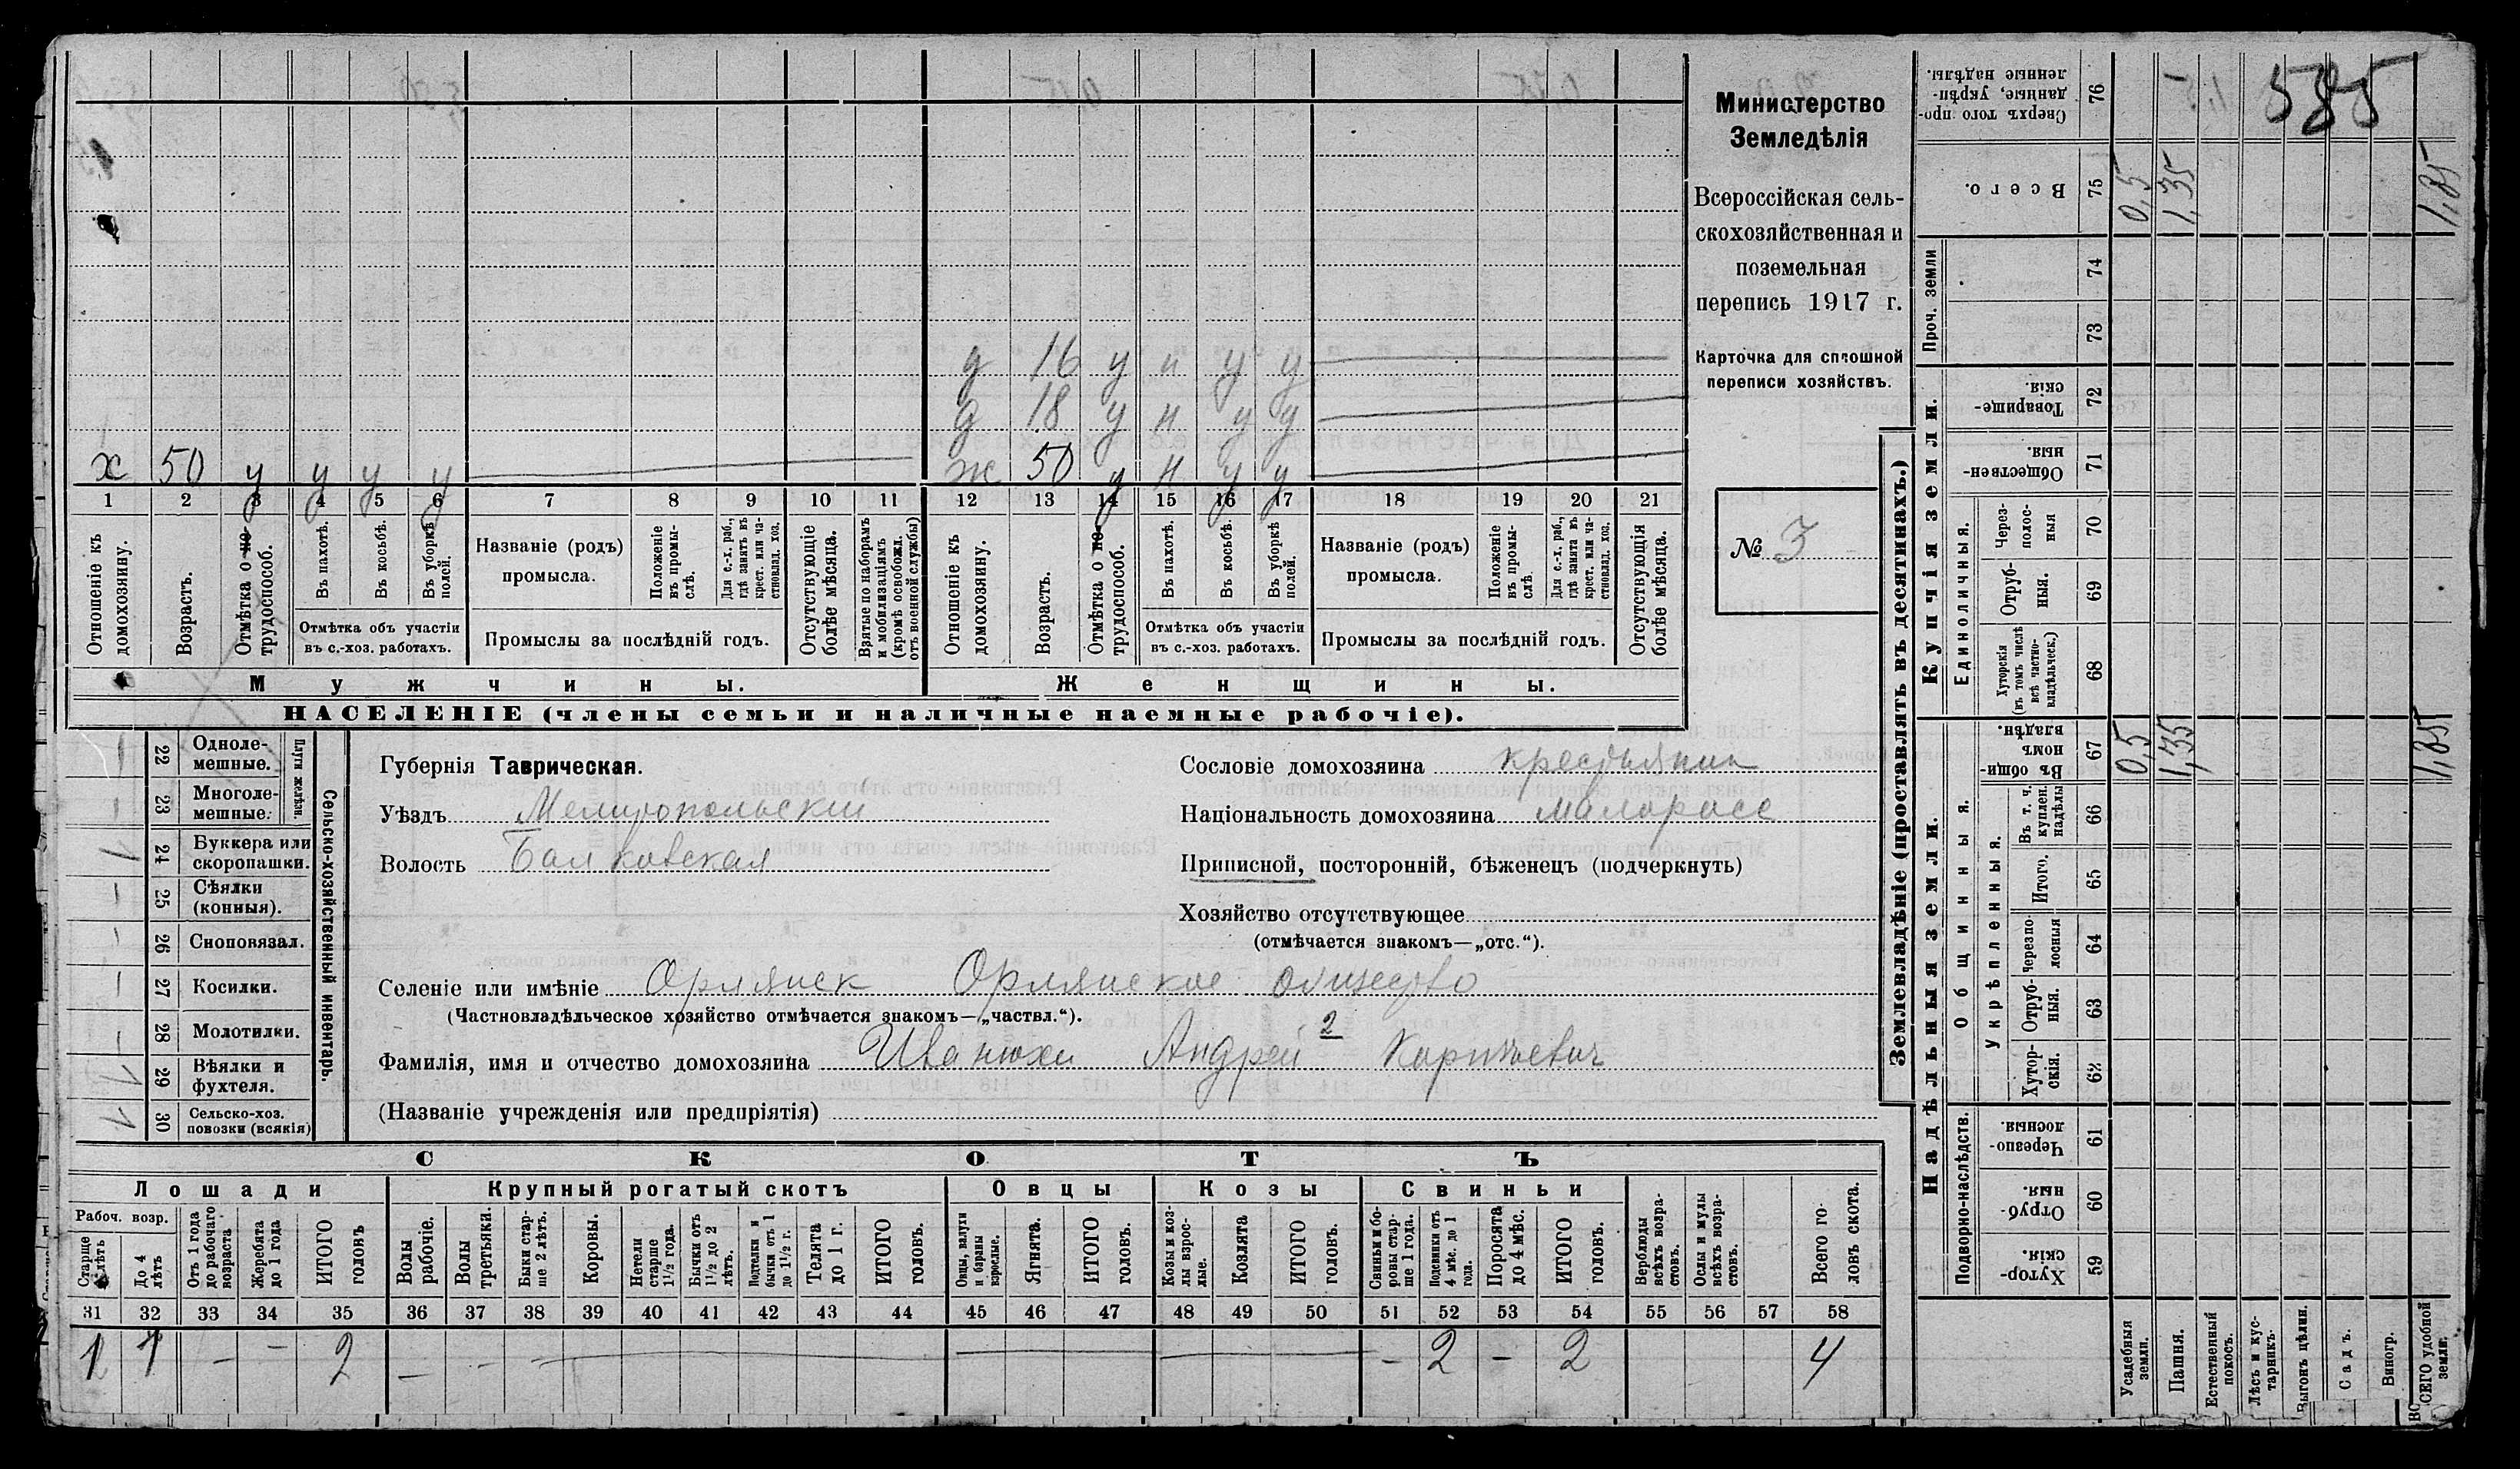 585
Министерство
Земледѣлія
Всероссійская сель-
скохозяйственная и
поземельная
перепись 1917 г.
Карточка для сплошной
переписи хозяйствъ.
№ 3
д 16 у н у у
д 18 у н у у
х 50 у у у у
ж 50 у н у у
1 2 3 4 5 6 7 8 9 10 11 12 13 14 15 16 17 18 19 20 21
Отношеніе къ домохозяину.
Возрастъ.
Отмѣтка о не-трудоспособ.
Въ пахотѣ.
Въ косьбѣ.
Въ уборкѣ полей.
Отмѣтка объ участіи
въ с.-хоз. работахъ.
Названіе (родъ)
промысла.
Положеніе въ промы-слѣ.
Для с.-х. раб., гдѣ занятъ въ крест. или ча-стновлад. хоз.
Промыслы за послѣдній годъ.
Отсутствующіе болѣе мѣсяца.
Взятые по наборамъ и мобилизаціямъ (кромѣ освобожд. отъ военной службы)
Отношеніе къ домохозяину.
Возрастъ.
Отмѣтка о не-трудоспособ.
Въ пахотѣ.
Въ косьбѣ.
Въ уборкѣ полей.
Отмѣтка объ участіи
въ с.-хоз. работахъ.
Названіе (родъ)
промысла.
Положеніе въ промы-слѣ.
Для с.-х. раб., гдѣ занята въ крест. или ча-стновлад. хоз.
Промыслы за послѣдній годъ.
Отсутствующія болѣе мѣсяца.
Мужчины.
Женщины.
НАСЕЛЕНІЕ (члены семьи и наличные наемные рабочіе).
22 Одноле-мешные.
23 Многоле-мешные.
Плуги желѣзн.
24 Буккера или скоропашки. 1
25 Сѣялки (конныя). —
26 Сноповязал. —
27 Косилки. —
28 Молотилки. —
29 Вѣялки и фухтеля. 1
30 Сельско-хоз. повозки (всякія) 1
Сельско-хозяйственный инвентарь.
Губернія Таврическая.
Уѣздъ Мелитопольскій
Волость Балковская
Сословіе домохозяина крестьянин
Національность домохозяина малоросс
Приписной, посторонній, бѣженецъ (подчеркнуть)
Хозяйство отсутствующее
(отмѣчается знакомъ—„отс.“).
Селеніе или имѣніе Орлянск Орлянское общество
(Частновладѣльческое хозяйство отмѣчается знакомъ—„частвл.“).
2
Фамилія, имя и отчество домохозяина Иванюхи Андрей Карпович
(Названіе учрежденія или предпріятія)
СКОТЪ
Лошади
Крупный рогатый скотъ
Овцы
Козы
Свиньи
Рабоч. возр.
Старше 4 лѣтъ
До 4 лѣтъ
Отъ 1 года до рабочаго возраста
Жеребята до 1 года
ИТОГО головъ
Волы рабочіе.
Волы третьяки.
Быки стар-ше 2 лѣтъ.
Коровы.
Нетели старше 1½ года.
Бычки отъ 1½ до 2 лѣтъ.
Подтелки и бычки отъ 1 до 1½ г.
Телята до 1 г.
ИТОГО головъ.
Овцы, валухи и бараны взрослые.
Ягнята.
ИТОГО головъ.
Козы и коз-лы взрос-лые.
Козлята
ИТОГО головъ.
Свиньи и бо-ровы стар-ше 1 года.
Подсвинки отъ 4 мѣс. до 1 года.
Поросята до 4 мѣс.
ИТОГО головъ.
Верблюды всѣхъ возра-стовъ.
Ослы и мулы всѣхъ возра-стовъ.
Всего го-ловъ скота.
31 32 33 34 35 36 37 38 39 40 41 42 43 44 45 46 47 48 49 50 51 52 53 54 55 56 57 58
1 1 — — 2 — — — — 2 — 2 4
Землевладѣніе (проставлять въ десятинахъ.)
Надѣльныя земли.
Купчія земли.
Проч. земли
Подворно-наслѣдств.
Общинныя.
Укрѣпленныя.
Единоличныя.
Сверхъ того про-данные, укрѣп-ленные надѣлы. 76
Всего. 75 0,5 1,35 1,85
74
73
Товарище-скія. 72
Обществен-ныя. 71
Через-полос-ныя 70
Отруб-ныя. 69
Хуторскія (въ томъ числѣ всѣ частно-владѣльческ.) 68
Въ общин-номъ владѣн. 67 0,5 1,35 1,85
Въ т. ч. куплен. надѣлы 66
Итого. 65
Черезпо-лосныя 64
Отруб-ныя. 63
Хутор-скія. 62
Черезпо-лосныя. 61
Отруб-ныя. 60
Хутор-скія. 59
Усадебныя земли.
Пашня.
Естественный покосъ.
Лѣсъ и кус-тарникъ.
Выгонъ цѣлин.
Садъ.
Виногр.
ВСЕГО удобной земли.